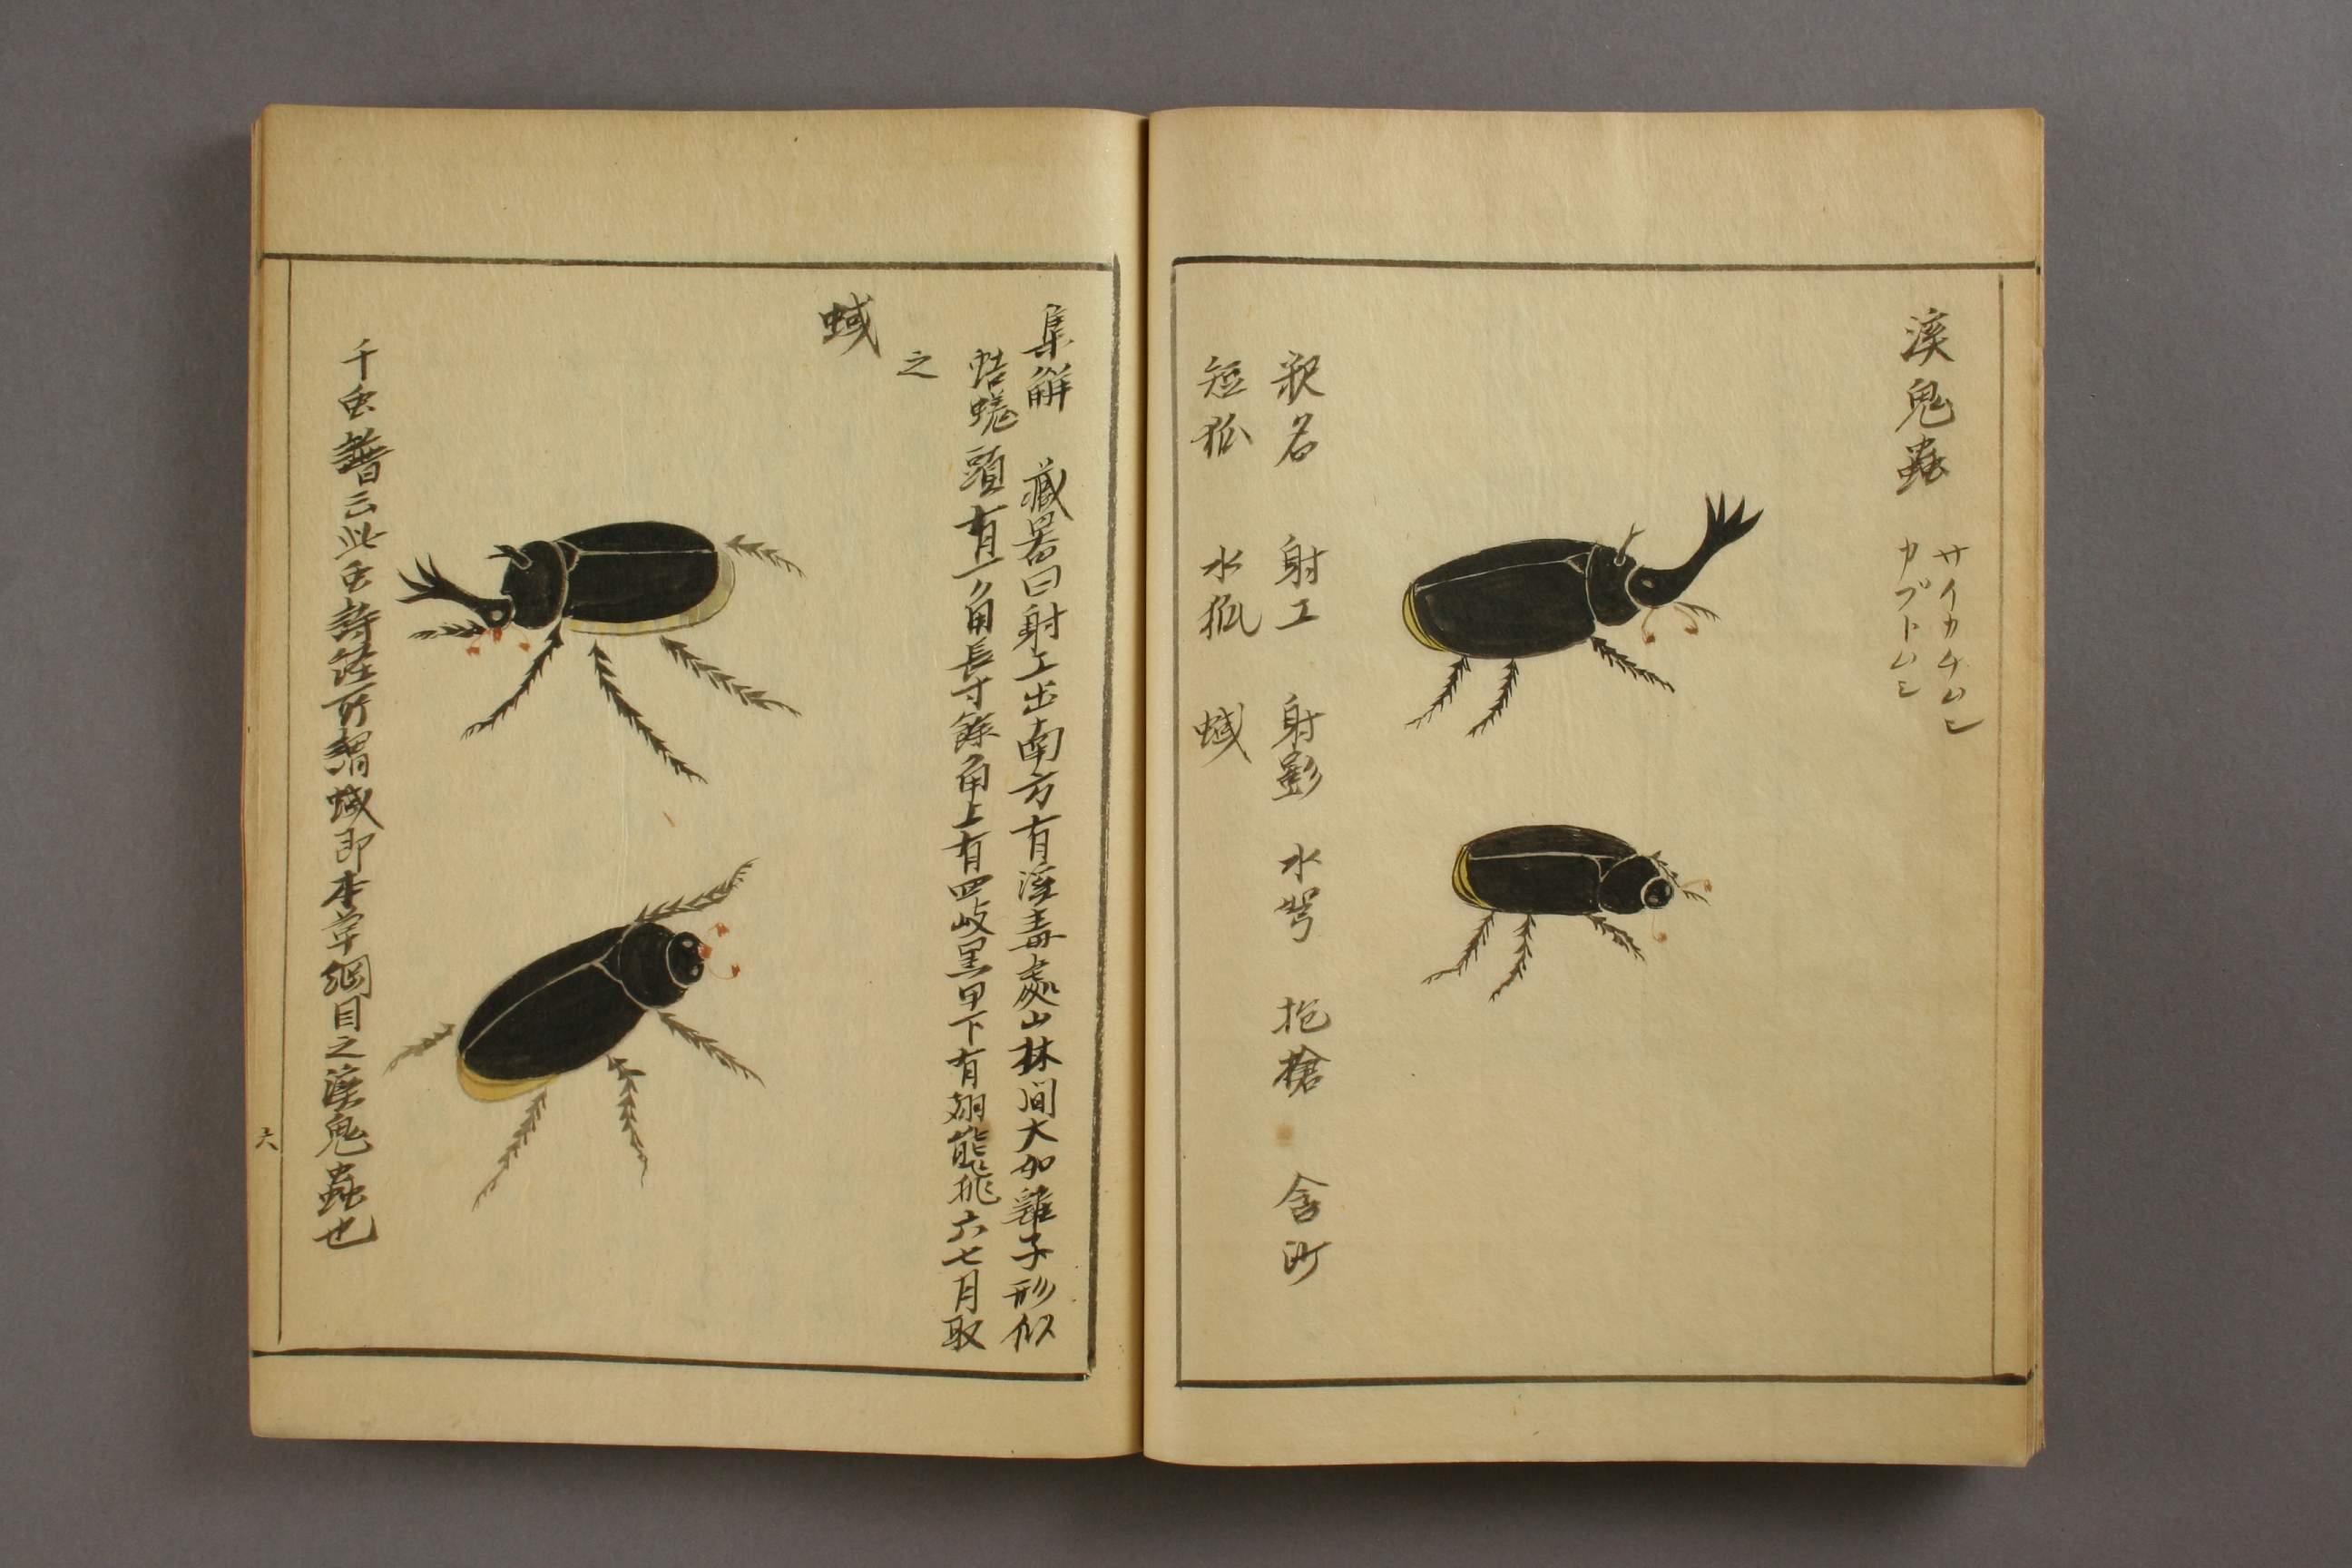 溪鬼蟲
サイカチムシ
カブトムシ
釈名 射工 射影 水弩 抱槍 含沙
短狐 水狐 蜮
集解 藏器曰射工出南方有溪毒處山林間大如雞子形似
蛣蜣頭有一角長寸餘角上有四岐黒甲下有翅能飛六七月取
之
蜮
千虫譜云此虫詩経所謂蜮即本草綱目之溪鬼蟲也
六